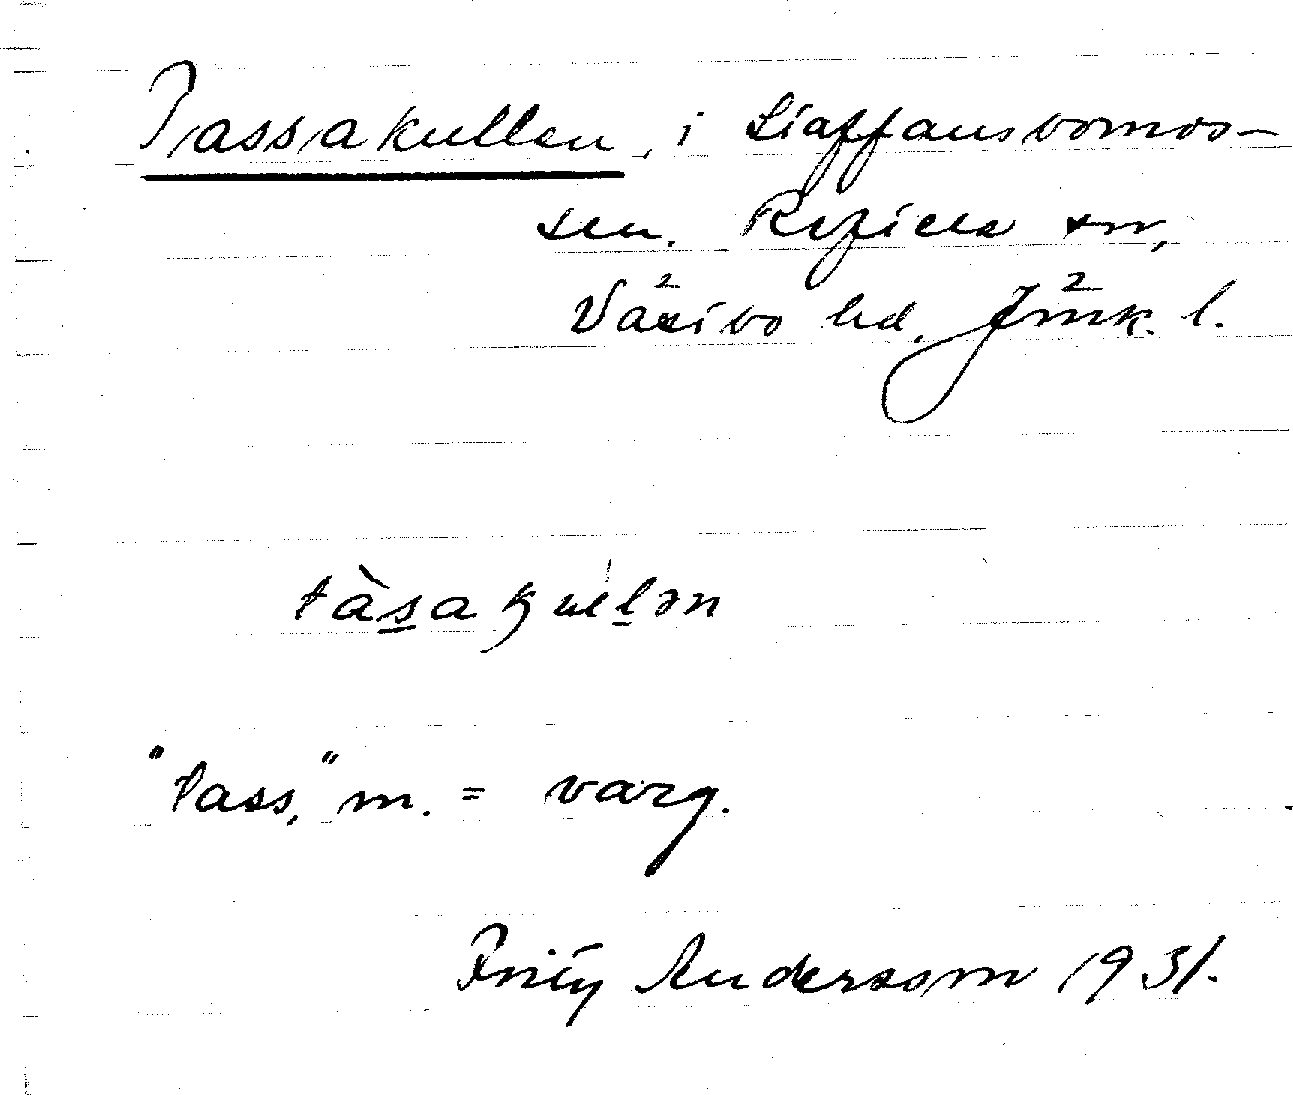 Tassakullen, i Staffansbomos-
sen. Reftele sn,
Västbo hd. Jönk. l.
tàs̲akul̲ən
"tass," m. = varg.
Fritz Andersson 1931.